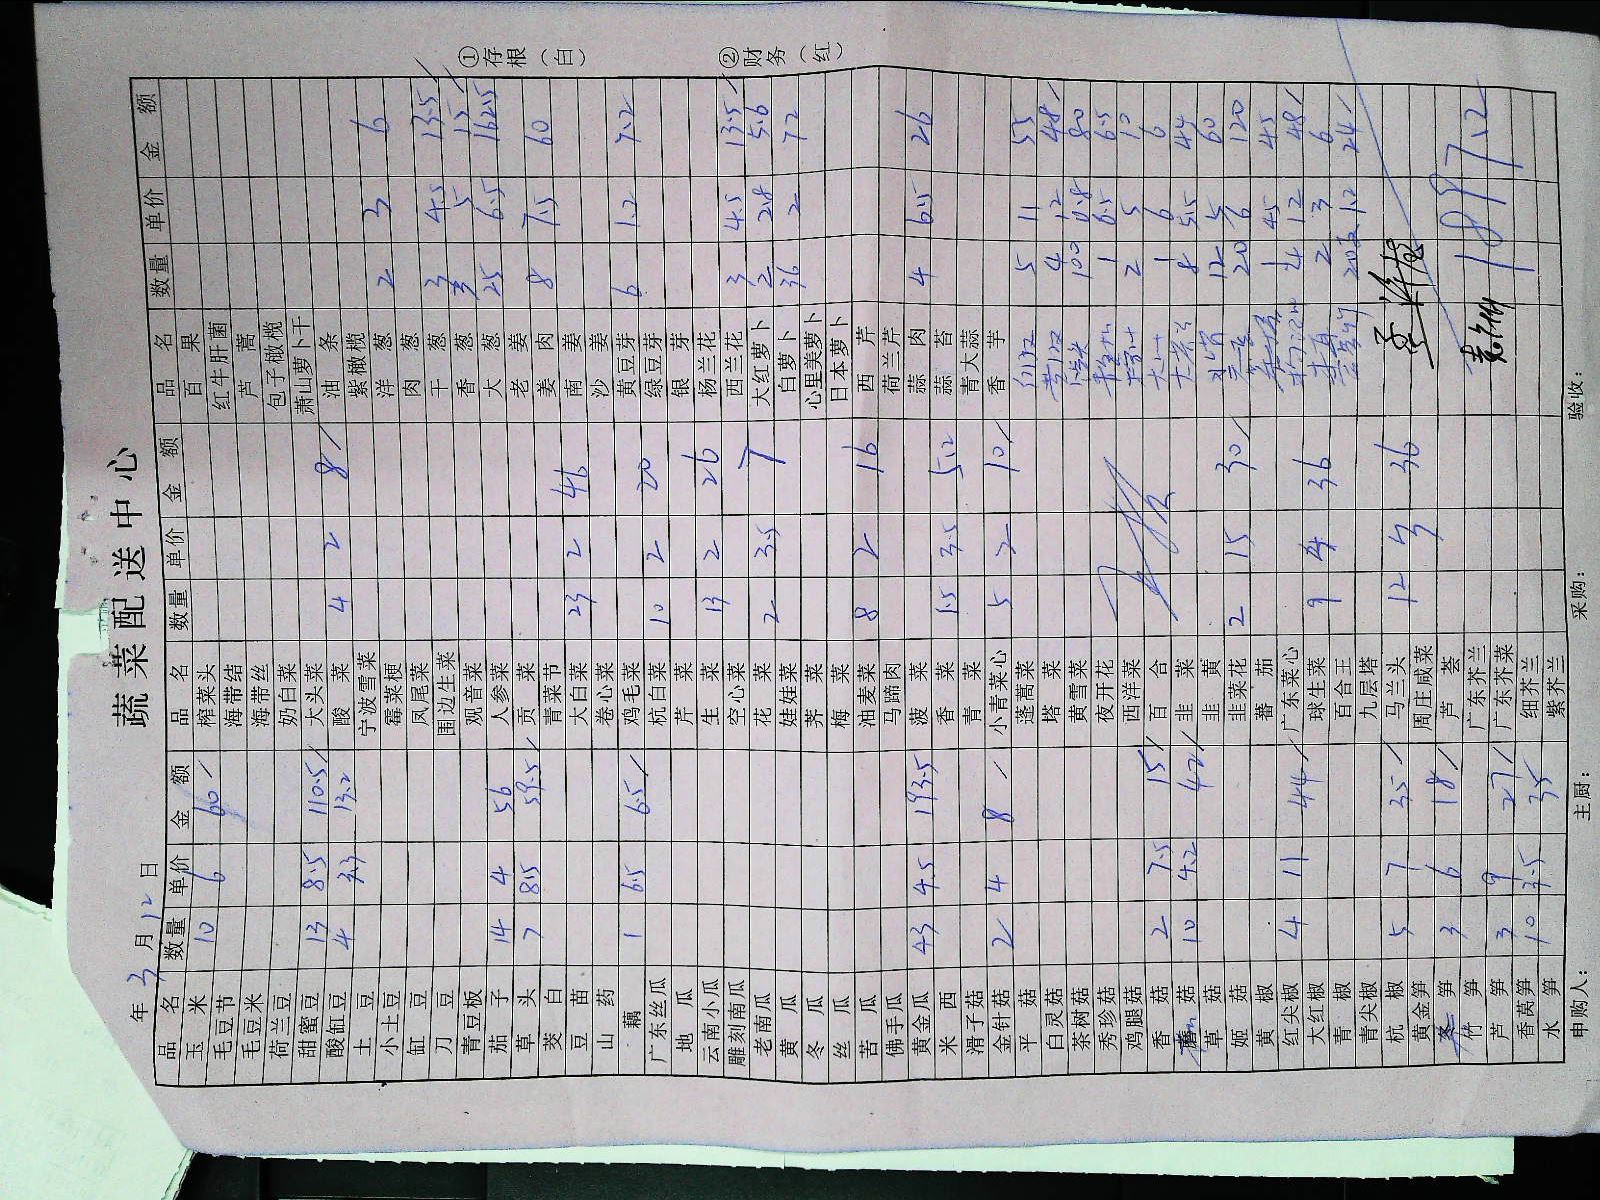 蔬菜配送中心
年3月12日
品名 数量 单价 金额 品名 数量 单价 金额 品名 数量 单价 金额
玉米 10 6 60 榨菜头 百果
毛豆节 海带结 红牛肝菌
毛豆米 海带丝 芦蒿
荷兰豆 奶白菜 包子橄榄
甜蜜豆 13 8.5 110.5 大头菜 萧山萝卜干
酸缸豆 4 3.3 13.2 酸菜 4 2 8 油条
土豆 宁波雪菜 紫橄榄
小土豆 霉菜梗 洋葱 2 3 6
缸豆 凤尾菜 肉葱
刀豆 围边生菜 干葱 3 4.5 13.5
青豆板 观音菜 香葱 3 5 15
茄子 14 4 56 人参菜 大葱 25 6.5 162.5
草头 7 8.5 59.5 贡菜 老姜
茭白 青菜节 姜肉 8 7.5 60
豆苗 大白菜 23 2 46 南姜
山药 卷心菜 沙姜
藕 1 6.5 6.5 鸡毛菜 黄豆芽 6 1.2 7.2
广东丝瓜 杭白菜 10 2 20 绿豆芽
地瓜 芹菜 银芽
云南小瓜 生菜 13 2 26 杨兰花
雕刻南瓜 空心菜 西兰花 3 4.5 13.5
老南瓜 花菜 2 3.5 7 大红萝卜 2 2.8 5.6
黄瓜 娃娃菜 白萝卜 36 2 72
冬瓜 荠菜 心里美萝卜
丝瓜 梅菜 日本萝卜
苦瓜 油麦菜 8 2 16 西芹
佛手瓜 马蹄肉 荷兰芹
黄金瓜 43 4.5 193.5 菠菜 蒜肉 4 6.5 26
米西 香菜 1.5 3.5 5.2 蒜苔
滑子菇 青菜 青大蒜
金针菇 2 4 8 小青菜心 5 2 10 香芋
平菇 蓬蒿菜 5 11 55
白灵菇 塔菜 4 12 48
茶树菇 黄雪菜 100 0.8 80
秀珍菇 夜开花 1 6.5 6.5
鸡腿菇 西洋菜 2 5 10
香菇 2 7.5 15 百合 1 6 6
蘑菇 10 4.2 42 韭菜 8 5.5 44
草菇 韭黄 12 5 60
姬菇 韭菜花 2 15 30 20 6 120
黄椒 蕃茄 1 45 45
红尖椒 4 11 44 广东菜心 4 12 48
大红椒 球生菜 9 4 36 2 3 6
青椒 百合王 20 1.2 24
青尖椒 九层塔
杭椒 5 7 35 马兰头 12 3 36
黄金笋 周庄咸菜
冬笋 3 6 18 芦荟
竹笋 广东芥兰
芦笋 3 9 27 广东芥菜 1897.2
香莴笋 10 3.5 35 细芥兰
水笋 紫芥兰
申购人： 主厨： 采购： 验收：
①存根（白） ②财务（红）